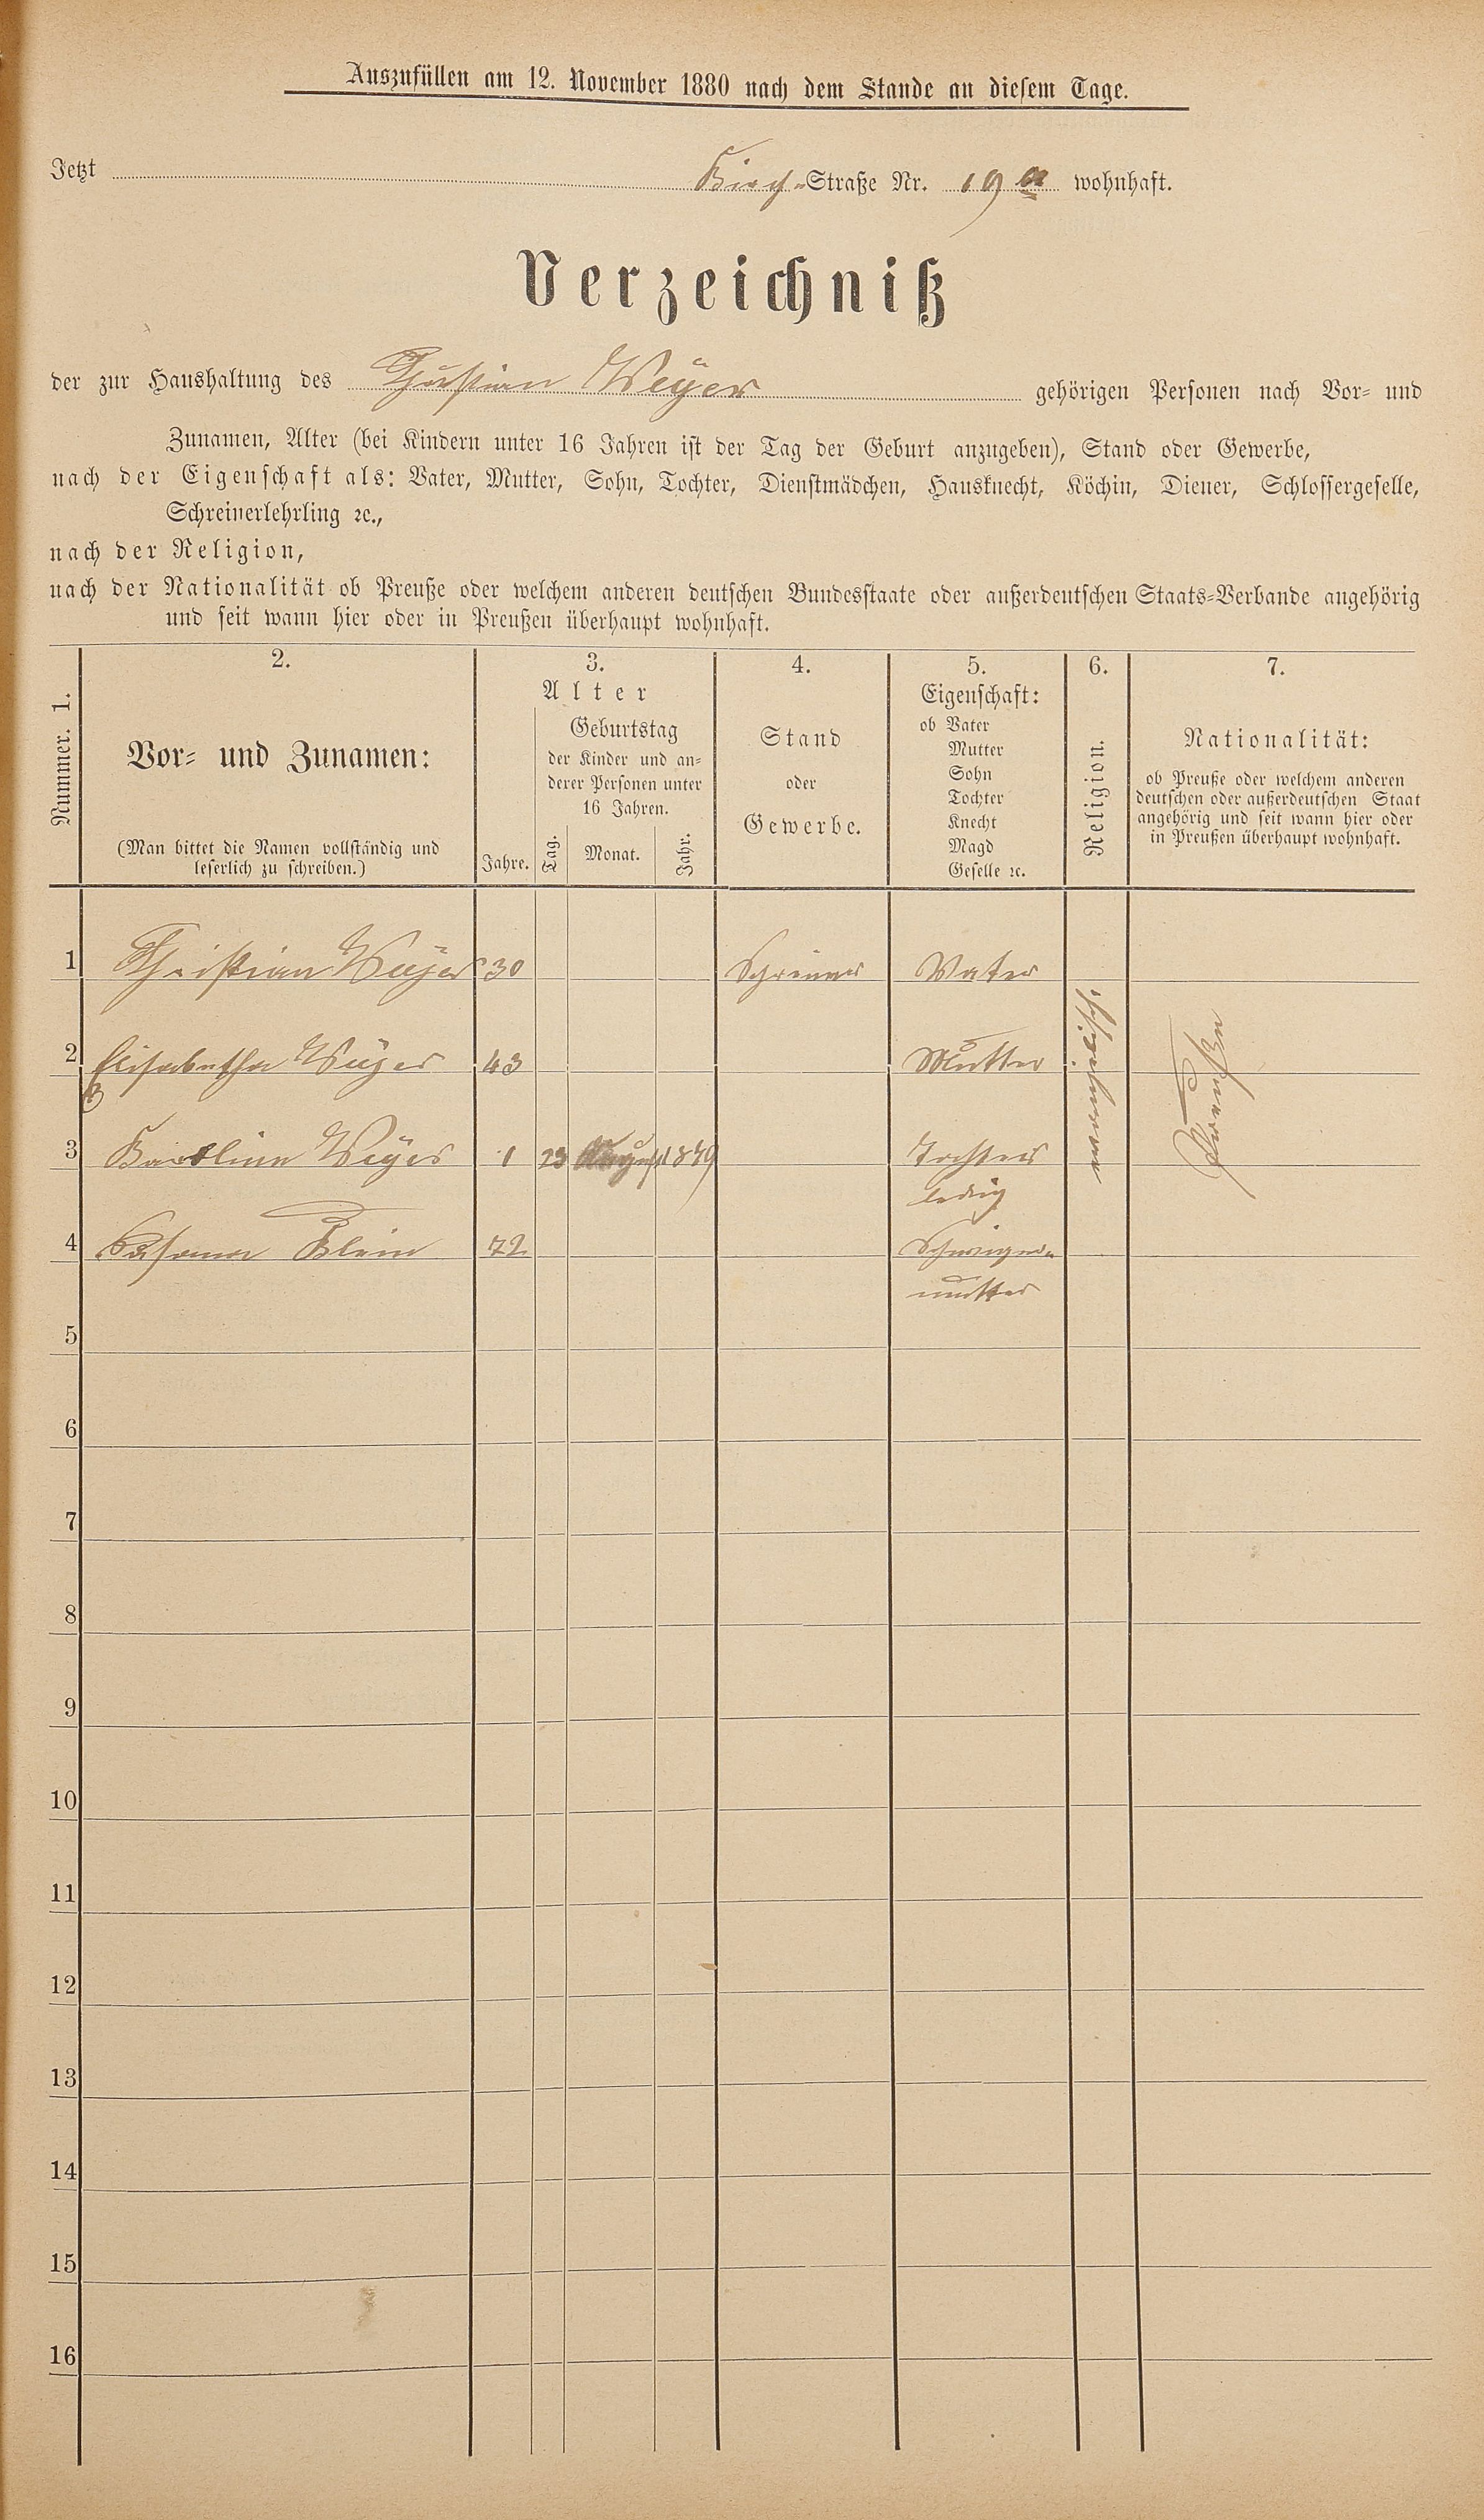 Auszufüllen am 12. November 1880 nach dem Stande an diesem Tage.
Jetzt Kirch-Straße Nr. 19 a wohnhaft.
Verzeichniß
der zur Haushaltung des Christian Weyer gehörigen Personen nach Vor- und
Zunamen, Alter (bei Kindern unter 16 Jahren ist der Tag der Geburt anzugeben), Stand oder Gewerbe,
nach der Eigenschaft als: Vater, Mutter, Sohn, Tochter, Dienstmädchen, Hausknecht, Köchin, Diener, Schlossergeselle,
Schreinerlehrling ꝛc.,
nach der Religion,
nach der Nationalität ob Preuße oder welchem anderen deutschen Bundesstaate oder außerdeutschen Staats-Verbande angehörig
und seit wann hier oder in Preußen überhaupt wohnhaft.
Nummer. 1.
2.
Vor- und Zunamen:
(Man bittet die Namen vollständig und
leserlich zu schreiben.)
3.
Alter
Jahre.
Geburtstag
der Kinder und an-
derer Personen unter
16 Jahren.
Tag. Monat. Jahr.
4.
Stand
oder
Gewerbe.
5.
Eigenschaft:
ob Vater
Mutter
Sohn
Tochter
Knecht
Magd
Geselle ꝛc.
6.
Religion.
7.
Nationalität:
ob Preuße oder welchem anderen
deutschen oder außerdeutschen Staat
angehörig und seit wann hier oder
in Preußen überhaupt wohnhaft.
1 Christian Weyer 30 Schreiner Vater
2 Elisabetha Weyer 43 Mutter
3 Karoline Weyer 1 23 August 1879 Tochter
ledig
4 Klein 72 Schwieger-
mutter
Preußen
5
6
7
8
9
10
11
12
13
14
15
16